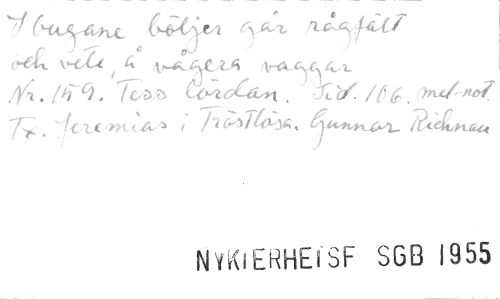 I bugane böljer går rågfält
och vete, å vågera vaggar
Nr. 159. Tess lördan. Sid. 106. mel-not.
Tx. Jeremias i Tröstlösa. Gunnar Richnau
NYKIERHEISF SGB 1955